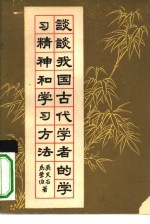 談談我国古代学者的学
习精神和学习方法
吳天石
馬莹伯著